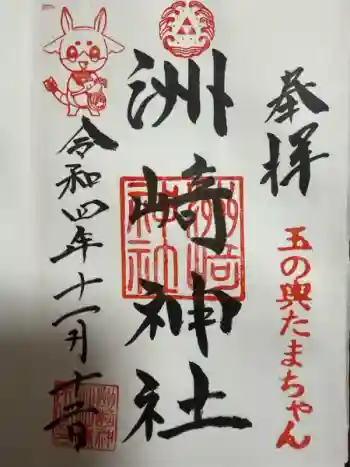 奉拝
玉の輿たまちゃん
洲崎神社
洲崎神社
令和四年十一月